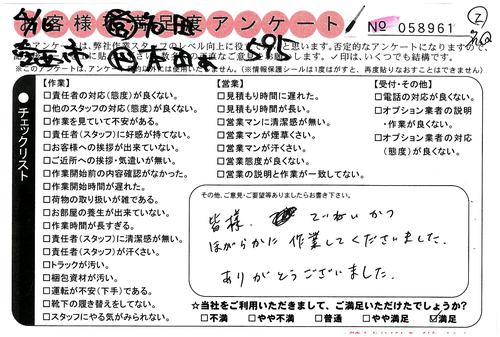 お客様満足度アンケート
No 058961
アンケートは、弊社作業スタッフのレベル向上に役
【作業】
□責任者の対応(態度)が良くない。
□他のスタッフの対応(態度)が良くない。
□作業を見ていて不安がある。
□責任者(スタッフ)に好感が持てない。
□お客様への挨拶が出来ていない。
□ご近所への挨拶・気遣いが無い。
□作業開始前の内容確認がなかった。
□作業開始時間が遅れた。
□荷物の取り扱いが雑である。
□お部屋の養生が出来ていない。
□作業時間が長すぎる。
□責任者(スタッフ)に清潔感が無い。
□責任者(スタッフ)が汗くさい。
□トラックが汚い。
□梱包資材が汚い。
□運転が不安(下手)である。
□靴下の履き替えをしてない。
□スタッフにやる気がみられない。
【営業】
□見積もり時間に遅れた。
□見積もり時間が長い。
□営業マンに清潔感が無い。
□営業マンが煙草くさい。
□営業マンが汗くさい。
□営業態度が良くない。
□営業の説明と作業が一致してない。
【受付・その他】
□電話の対応が良くない。
□オプション業者の説明
・作業が良くない。
□オプション業者の対応
(態度)が良くない。
チェックリスト
その他、ご意見・ご要望等ありましたらお書き下さい。
皆様、ていねいかつ
ほがらかに作業してくださいました。
ありがとうございました。
☆当社をご利用いただきまして、ご満足いただけたでしょうか?
□不満 □やや不満 □普通 □やや満足 ☑満足